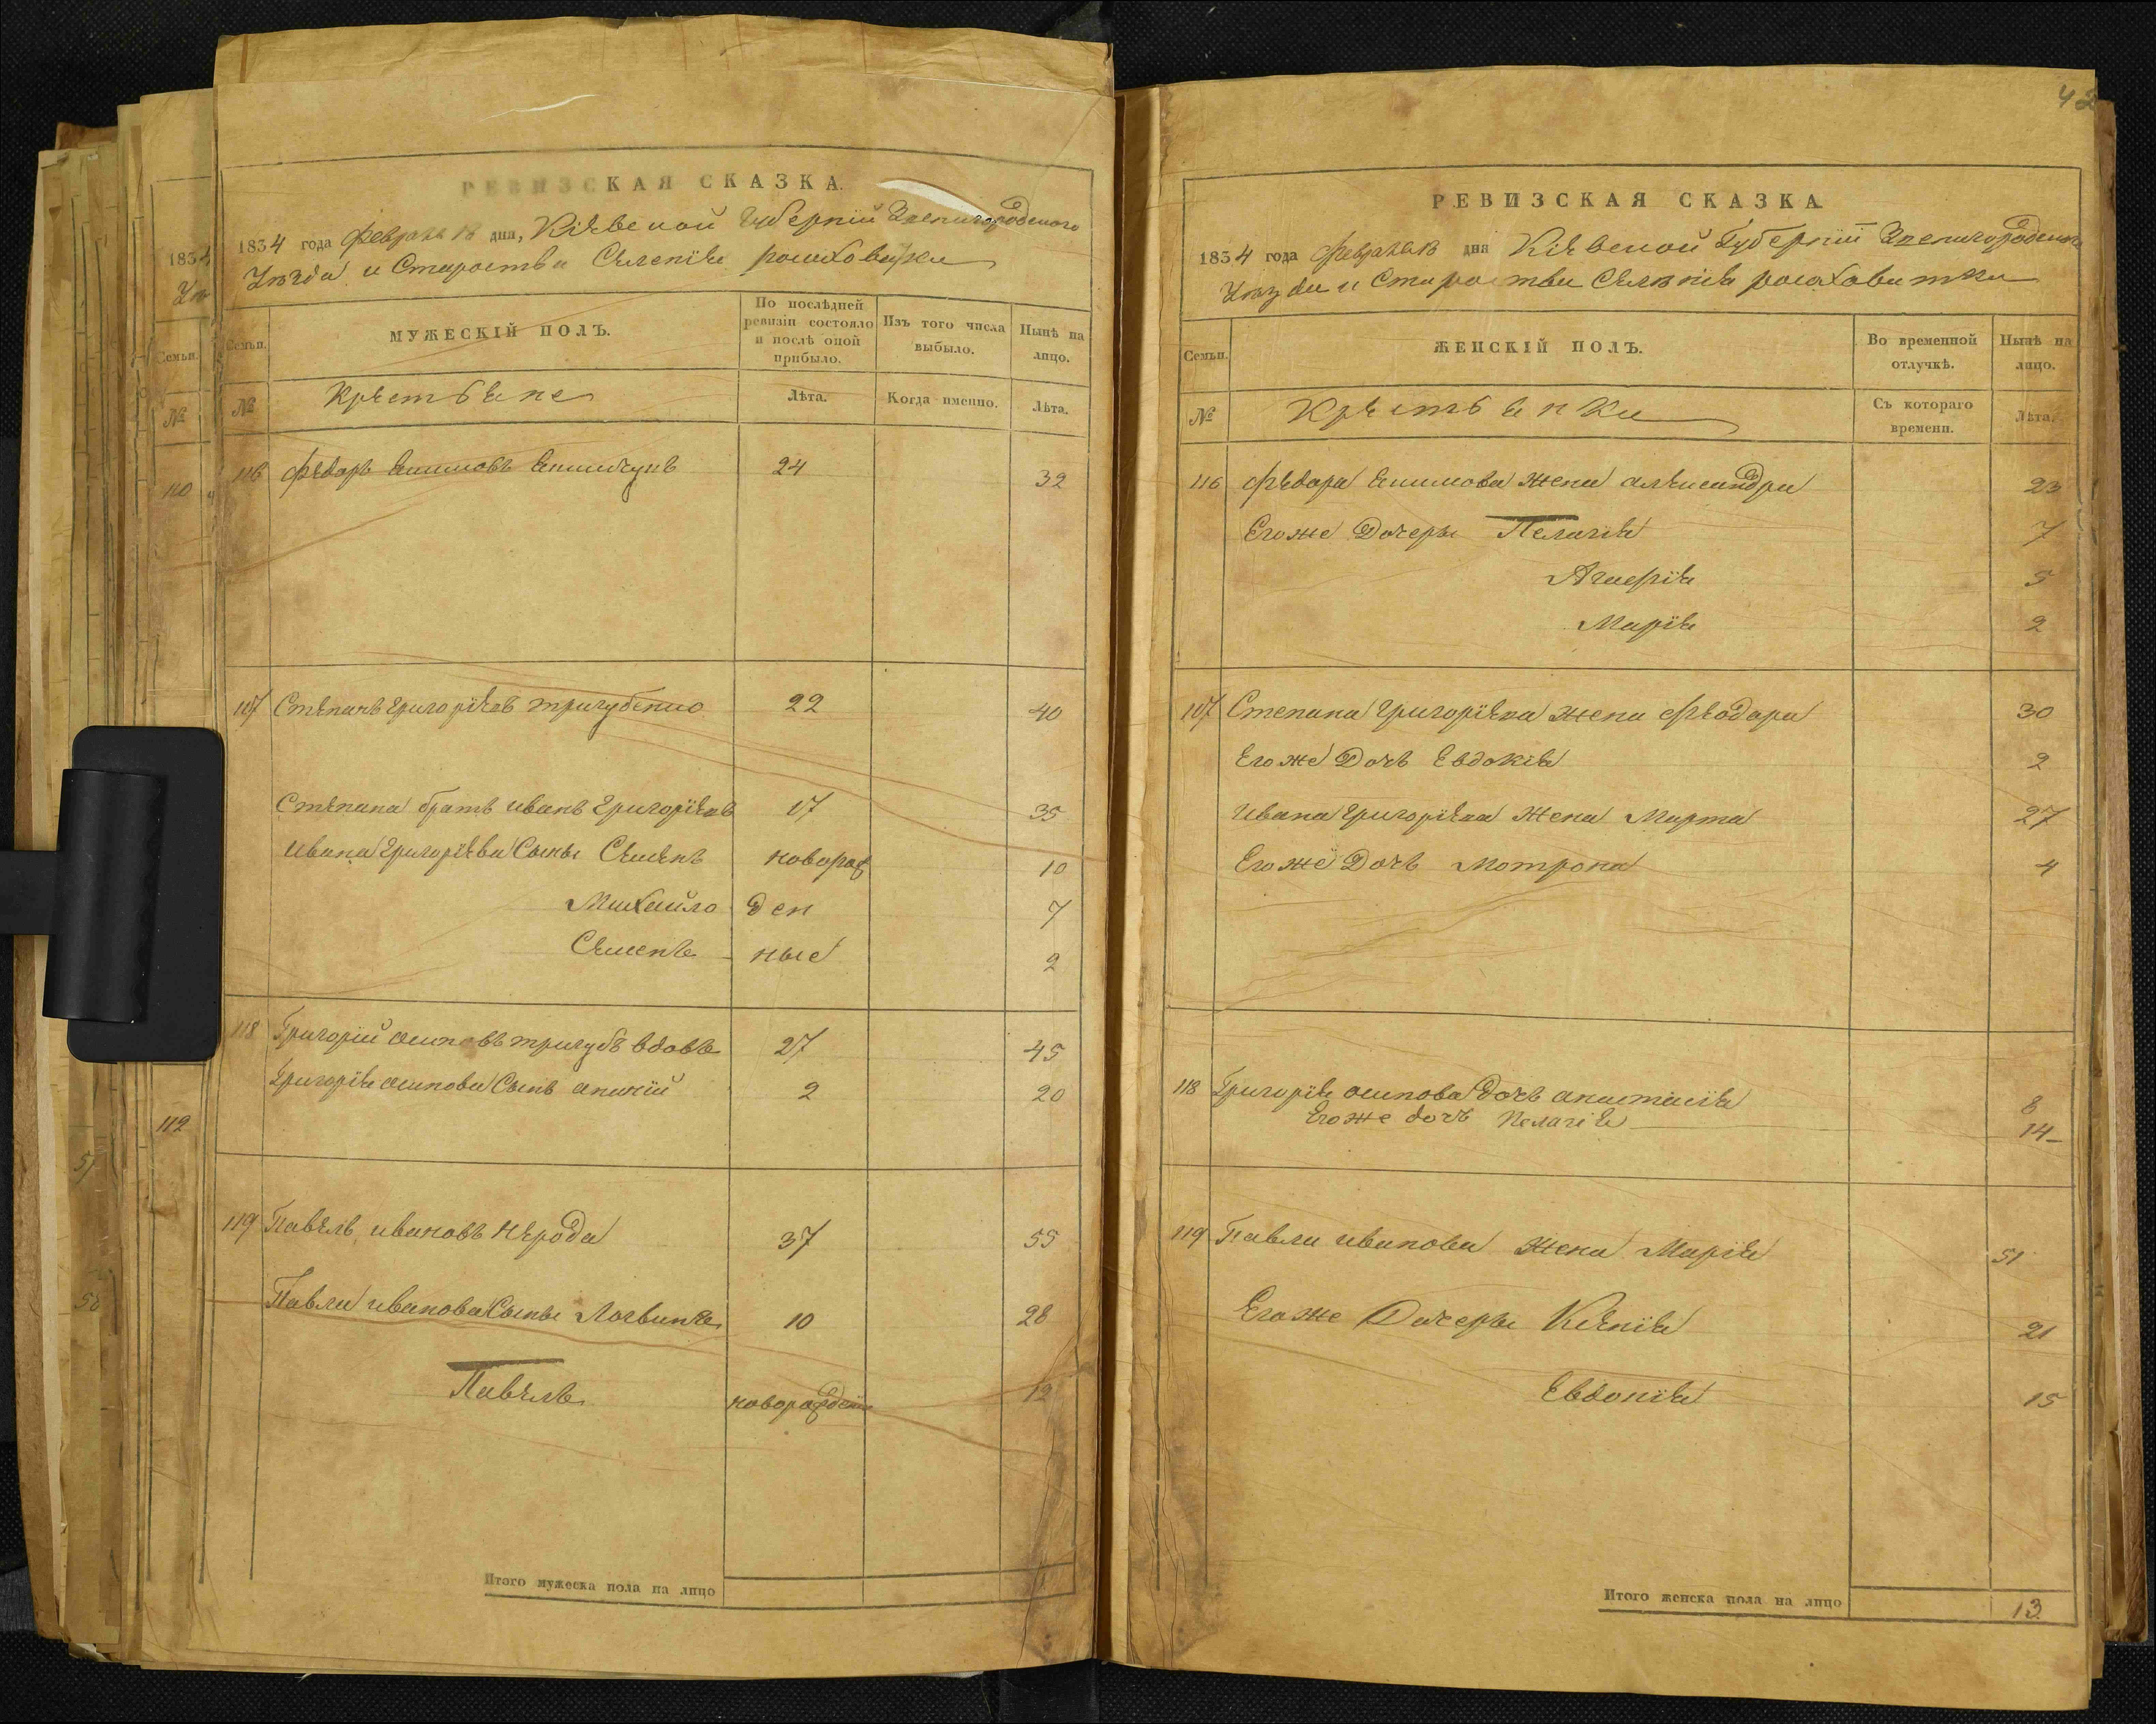 РЕВИЗСКАЯ СКАЗКА.
1834 года февраля 18 дня, Кіевской Губерніи Звенигородского
Уѣзда и Староства Селенія росоховатки
Семьи.
МУЖЕСКІЙ ПОЛЪ.
По послѣдней ревизіи состояло и послѣ оной прибыло.
Изъ того числа выбыло.
Нынѣ на лицо.
№
Крестьяне
Лѣта.
Когда именно.
Лѣта.
116 федоръ 24 32
117 Степанъ Григоріевъ тригубенко 22 40
Степана братъ иванъ Григоріевъ 17 35
ивана Григоріева Сыны Семенъ новорож 10
Михайло ден 7
Семенъ ные 2
118 Григорий осиповъ тригубъ вдовъ 27 45
Григорія осипова Сынъ ананій 2 20
119 Павелъ ивановъ Нерода 37 55
Павла иванова Сыны Логвинъ 10 28
Павелъ новорожден 12
Итого мужеска пола на лицо
1834
Семьи.
№
110
112
51
42
РЕВИЗСКАЯ СКАЗКА
1834 года февраля 18 дня Кіевской Губерніи Звенигородского
Уѣзда и Староства Селенія росоховатки
Семьи.
ЖЕНСКІЙ ПОЛЪ.
Во временной отлучкѣ.
Нынѣ на лицо.
№
Крестьянки
Съ котораго времени.
Лѣта.
116 федора жена александра 23
Его же Дочеры Пелагія 7
Агафія 5
Марія 2
117 Степана Григоріева жена феодора 30
Его же Дочь Евдокія 2
Ивана Григоріева жена Марта 27
Его же Дочь Мотрона 4
118 Григорія осипова дочь анастасія 8
Его же дочь Пелагія 14
119 Павла иванова жена Марія 51
Его же Дочеры Ксенія 21
Евдокія 15
Итого женска пола на лицо 13